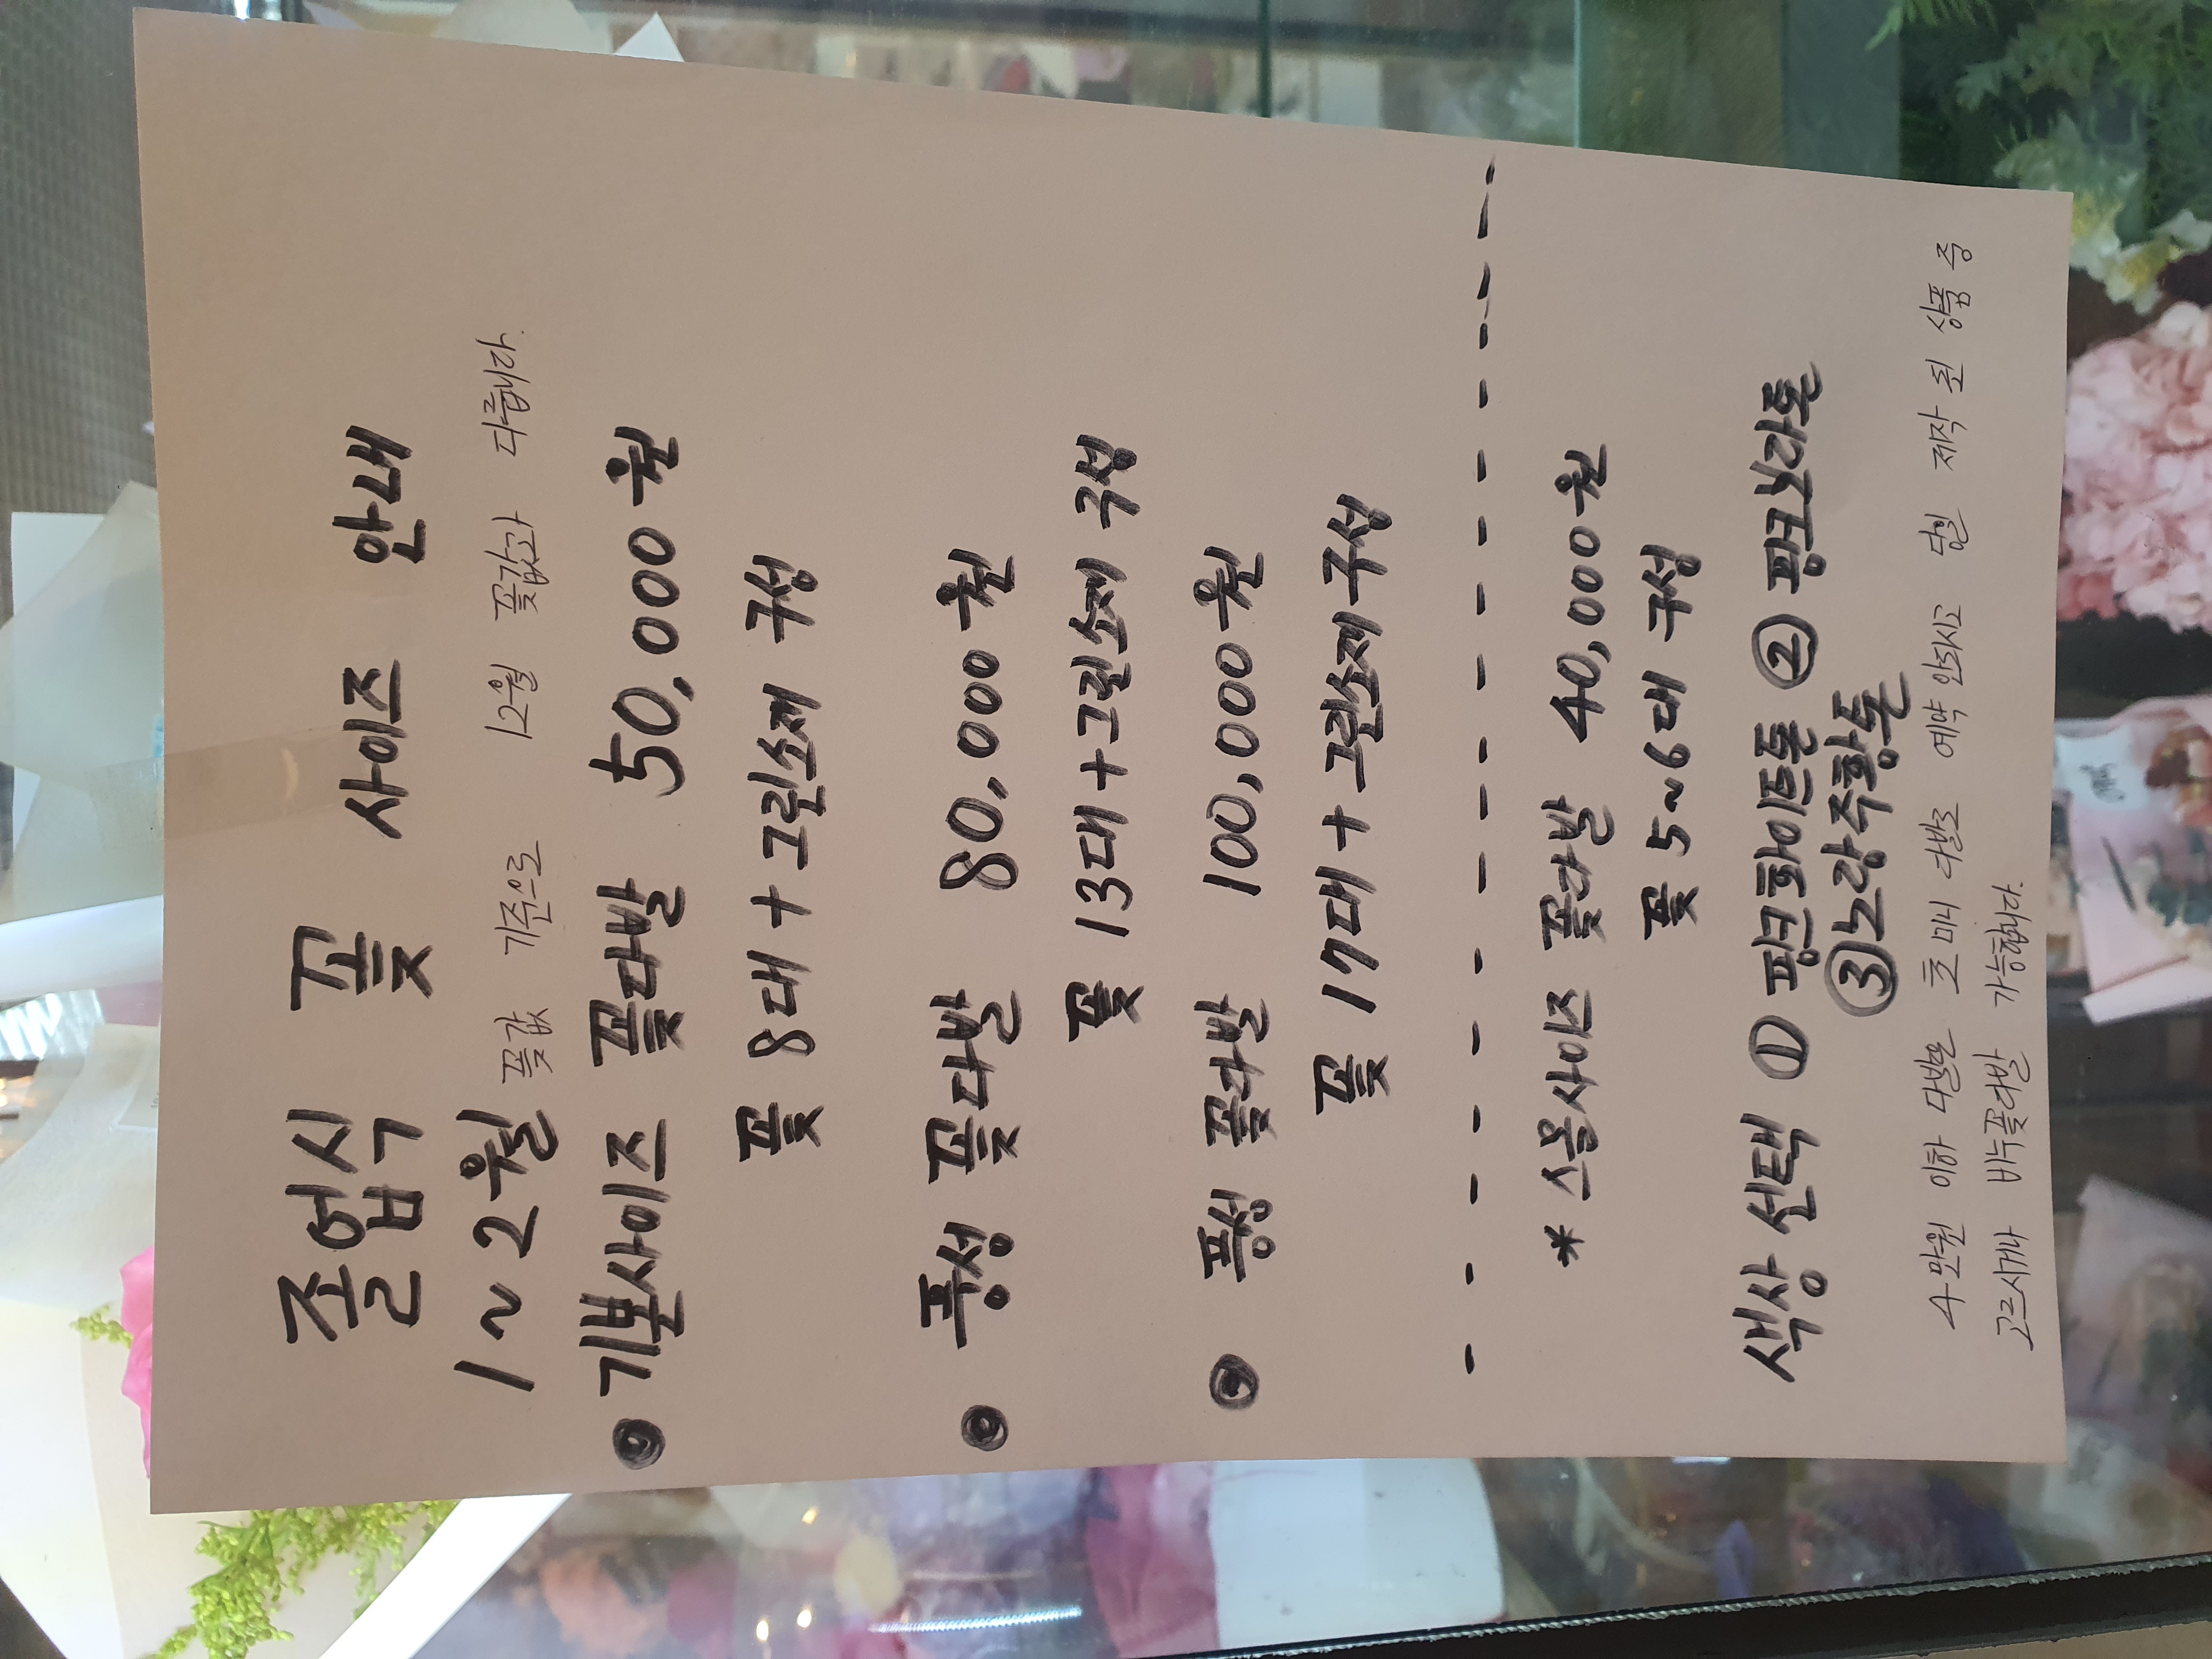 졸업식 꽃 사이즈 안내
1~2월 꽃값 기준으로 12월 꽃값과 다릅니다.
기본사이즈 꽃다발 50,000원
꽃 8대 + 그린소재 구성
풍성 꽃다발 80,000원
꽃 13대 + 그린소재 구성
풍성 꽃다발 100,000원
꽃 17대 + 그린소재 구성
* 스몰사이즈 꽃다발 40,000원
꽃 5~6대 구성
색상 선택 ① 핑크화이트톤 ② 핑크보라톤
③ 노랑주황톤
4만원 이하 다발은 초미니 다발로 예약 안되시고 당일 제작 된 상품 중
고르시거나 비누꽃다발 가능합니다.